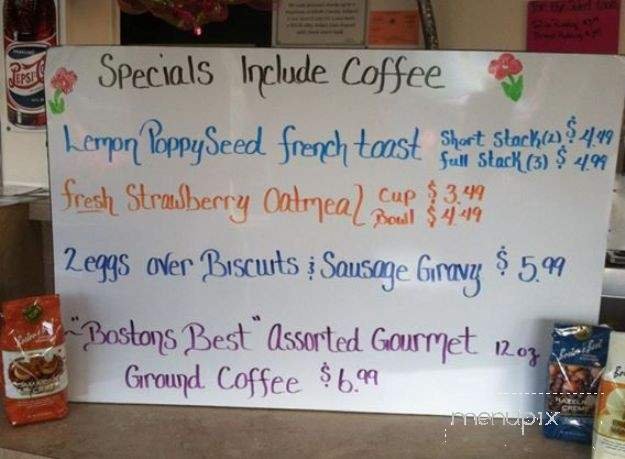 PEPSI
Specials Include Coffee
Lemon Poppy Seed french toast Short Stack (2) $4.49
full Stack (3) $4.99
fresh Strawberry Oatmeal Cup $3.49
Bowl $4.49
2 eggs over Biscuits & Sausage Gravy $5.99
"Bostons Best" Assorted Gourmet 12 oz
Ground Coffee $6.99
menupix